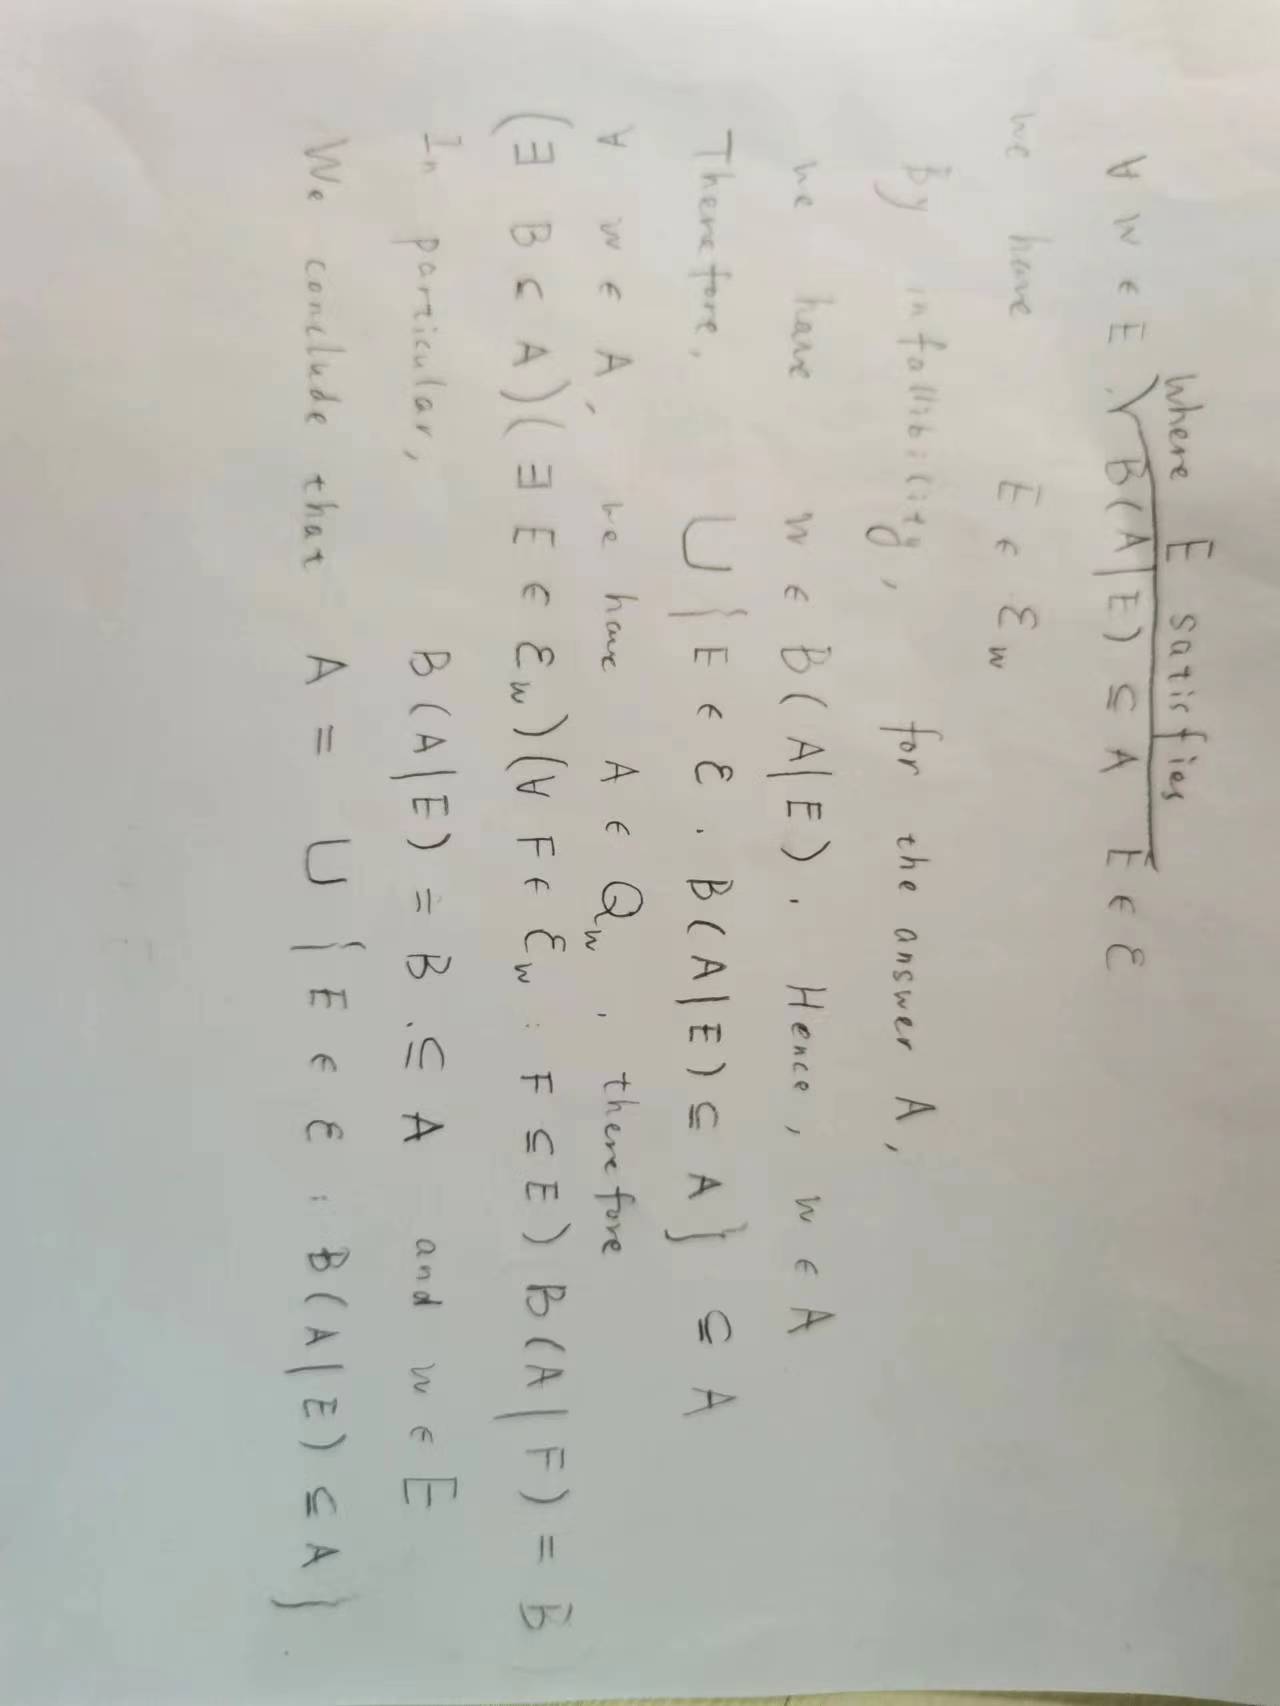 where E satisfies
∀ w ∈ E, B(A|E) ⊆ A E ∈ ℰ
we have E ∈ ℰ_w
By infallibility, for the answer A,
we have w ∈ B(A|E). Hence, w ∈ A
Therefore, ⋃{E ∈ ℰ. B(A|E) ⊆ A} ⊆ A
∀ w ∈ A, we have A ∈ Q_w, therefore
(∃ B ⊆ A)(∃ E ∈ ℰ_w)(∀ F ∈ ℰ_w : F ⊆ E) B(A|F) = B
In particular, B(A|E) = B ⊆ A and w ∈ E
We conclude that A = ⋃{E ∈ ℰ : B(A|E) ⊆ A}